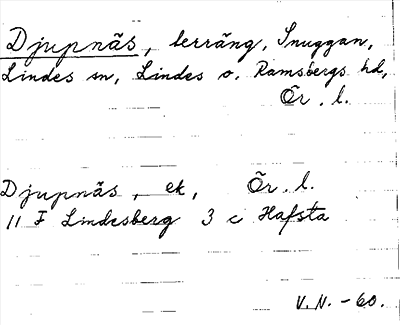 Djupnäs, lerräng, Snuggan,
Lindes sn, Lindes o. Ramsbergs hd,
Ör. l.
Djupnäs, ek, Ör. l.
11 F Lindesberg 3 c Hafsta
V. N. -60.